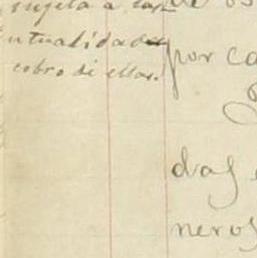 sujeta a las
ntualidades
cobro de ellas.
de os
por ca
das
neros